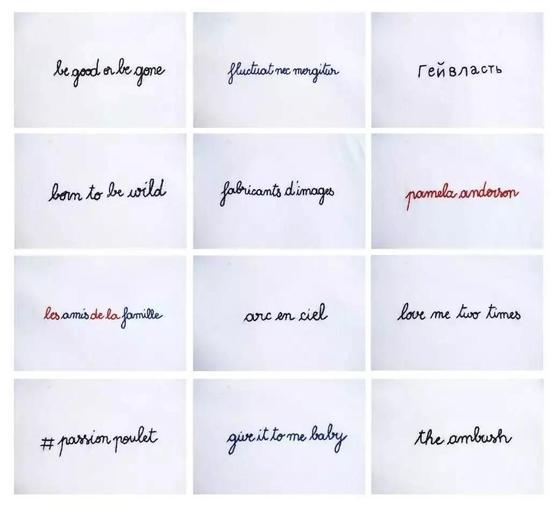 be good or be gone
fluctuat nec mergitur
Гей власть
born to be wild
fabricants d'images
pamela anderson
les amis de la famille
arc en ciel
love me two times
# passion poulet
give it to me baby
the ambush